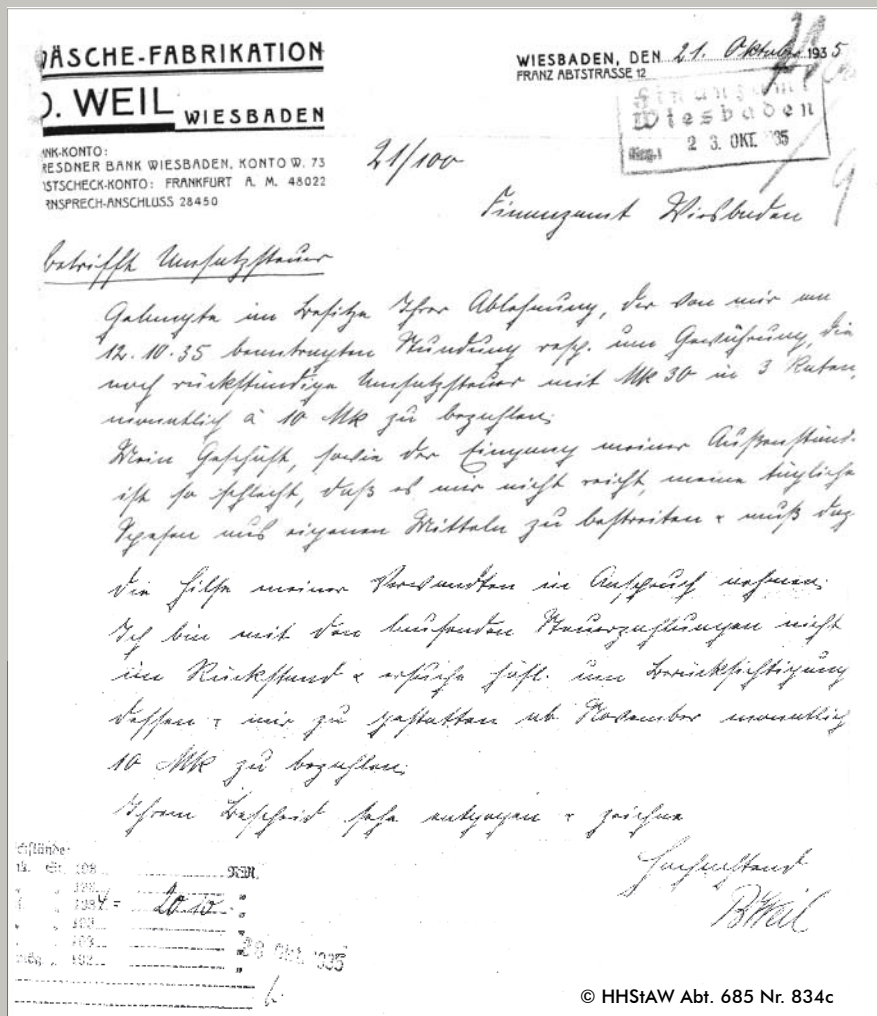 WÄSCHE-FABRIKATION
D. WEIL WIESBADEN
BANK-KONTO:
DRESDNER BANK WIESBADEN, KONTO W. 73
POSTSCHECK-KONTO: FRANKFURT A. M. 48022
FERNSPRECH-ANSCHLUSS 28450
WIESBADEN, DEN 21. Oktober 1935
FRANZ ABTSTRASSE 12
Finanzamt
Wiesbaden
Eing. 23. OKT. 35
21/100
Finanzamt Wiesbaden
betrifft Umsatzsteuer
Gelangte im Besitze Ihrer Ablehnung, der von mir am
12.10.35 beantragten Stundung resp. um Gewährung, die
noch rückständige Umsatzsteuer mit Mk 30 in 3 Raten,
monatlich à 10 Mk zu bezahlen.
Mein Geschäft, sowie der Eingang meiner Außenstände
ist so schlecht, daß es mir nicht reicht, meine tägliche
Spesen aus eigenen Mitteln zu bestreiten & muß dazu
die Hilfe meiner Verwandten in Anspruch nehmen.
Ich bin mit den laufenden Steuerzahlungen nicht
im Rückstand & ersuche höfl. um Berücksichtigung
dessen & mir zu gestatten ab November monatlich
10 Mk zu bezahlen.
Ihrem Bescheid sehe entgegen & zeichne
Hochachtend
Weil
RM.
1934 = 20.10
28 Okt. 1935
© HHStAW Abt. 685 Nr. 834c